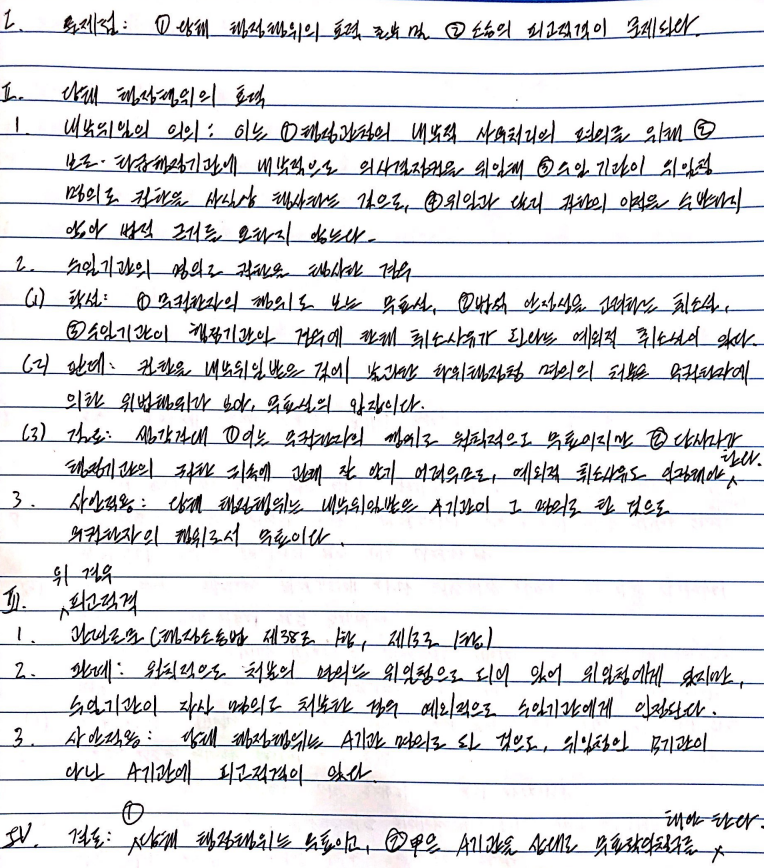 I. 문제점: ① 당해 행정행위의 효력 존부 및 ② 소송의 피고적격이 문제된다.
II. 당해 행정행위의 효력
1. 내부위임의 의의: 이는 ① 행정관청의 내부적 사무처리의 편의를 위해 ②
보조·하급행정기관에 내부적으로 의사결정권을 위임해 ③ 수임기관이 위임청
명의로 권한을 사실상 행사하는 것으로, ④ 위임과 달리 권한의 이전을 수반하지
않아 법적 근거를 요하지 않는다.
2. 수임기관의 명의로 권한을 행사한 경우
(1) 학설: ① 무권한자의 행위로 보는 무효설, ② 법적 안정성을 고려하는 취소설,
③ 수임기관이 행정기관인 경우에 한해 취소사유가 된다는 예외적 취소설이 있다.
(2) 판례: 권한을 내부위임받은 것에 불과한 하위행정청 명의의 처분은 무권한자에
의한 위법행위라 보아, 무효설의 입장이다.
(3) 검토: 생각건대 ① 이는 무권한자의 행위로 원칙적으로 무효이지만 ② 당사자가
행정기관의 권한 귀속에 관해 잘 알기 어려우므로, 예외적 취소사유도 인정해야 한다.
3. 사안적용: 당해 행정행위는 내부위임받은 A기관이 그 명의로 한 것으로
무권한자의 행위로서 무효이다.
III. 위 경우 피고적격
1. 관련조문 (행정소송법 제38조 1항, 제13조 1항)
2. 판례: 원칙적으로 처분의 명의는 위임청으로 되어 있어 위임청에게 있지만,
수임기관이 자신 명의로 처분한 경우 예외적으로 수임기관에게 인정된다.
3. 사안적용: 당해 행정행위는 A기관 명의로 된 것으로, 위임청인 B기관이
아닌 A기관에 피고적격이 있다.
IV. 결론: ① 당해 행정행위는 무효이고, ② 甲은 A기관을 상대로 무효확인청구를 해야 한다.